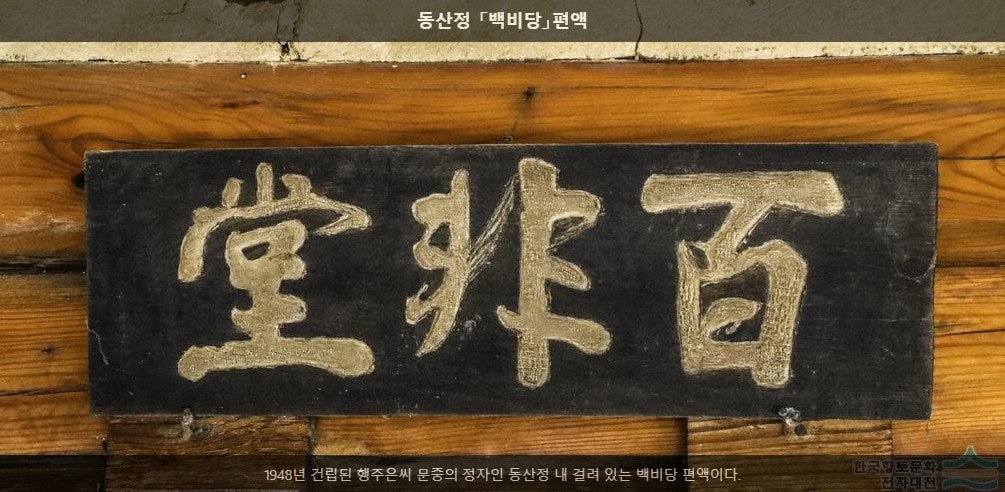 동산정 「백비당」편액
百非堂
1948년 건립된 행주은씨 문중의 정자인 동산정 내 걸려 있는 백비당 편액이다.
한국향토문화
전자대전